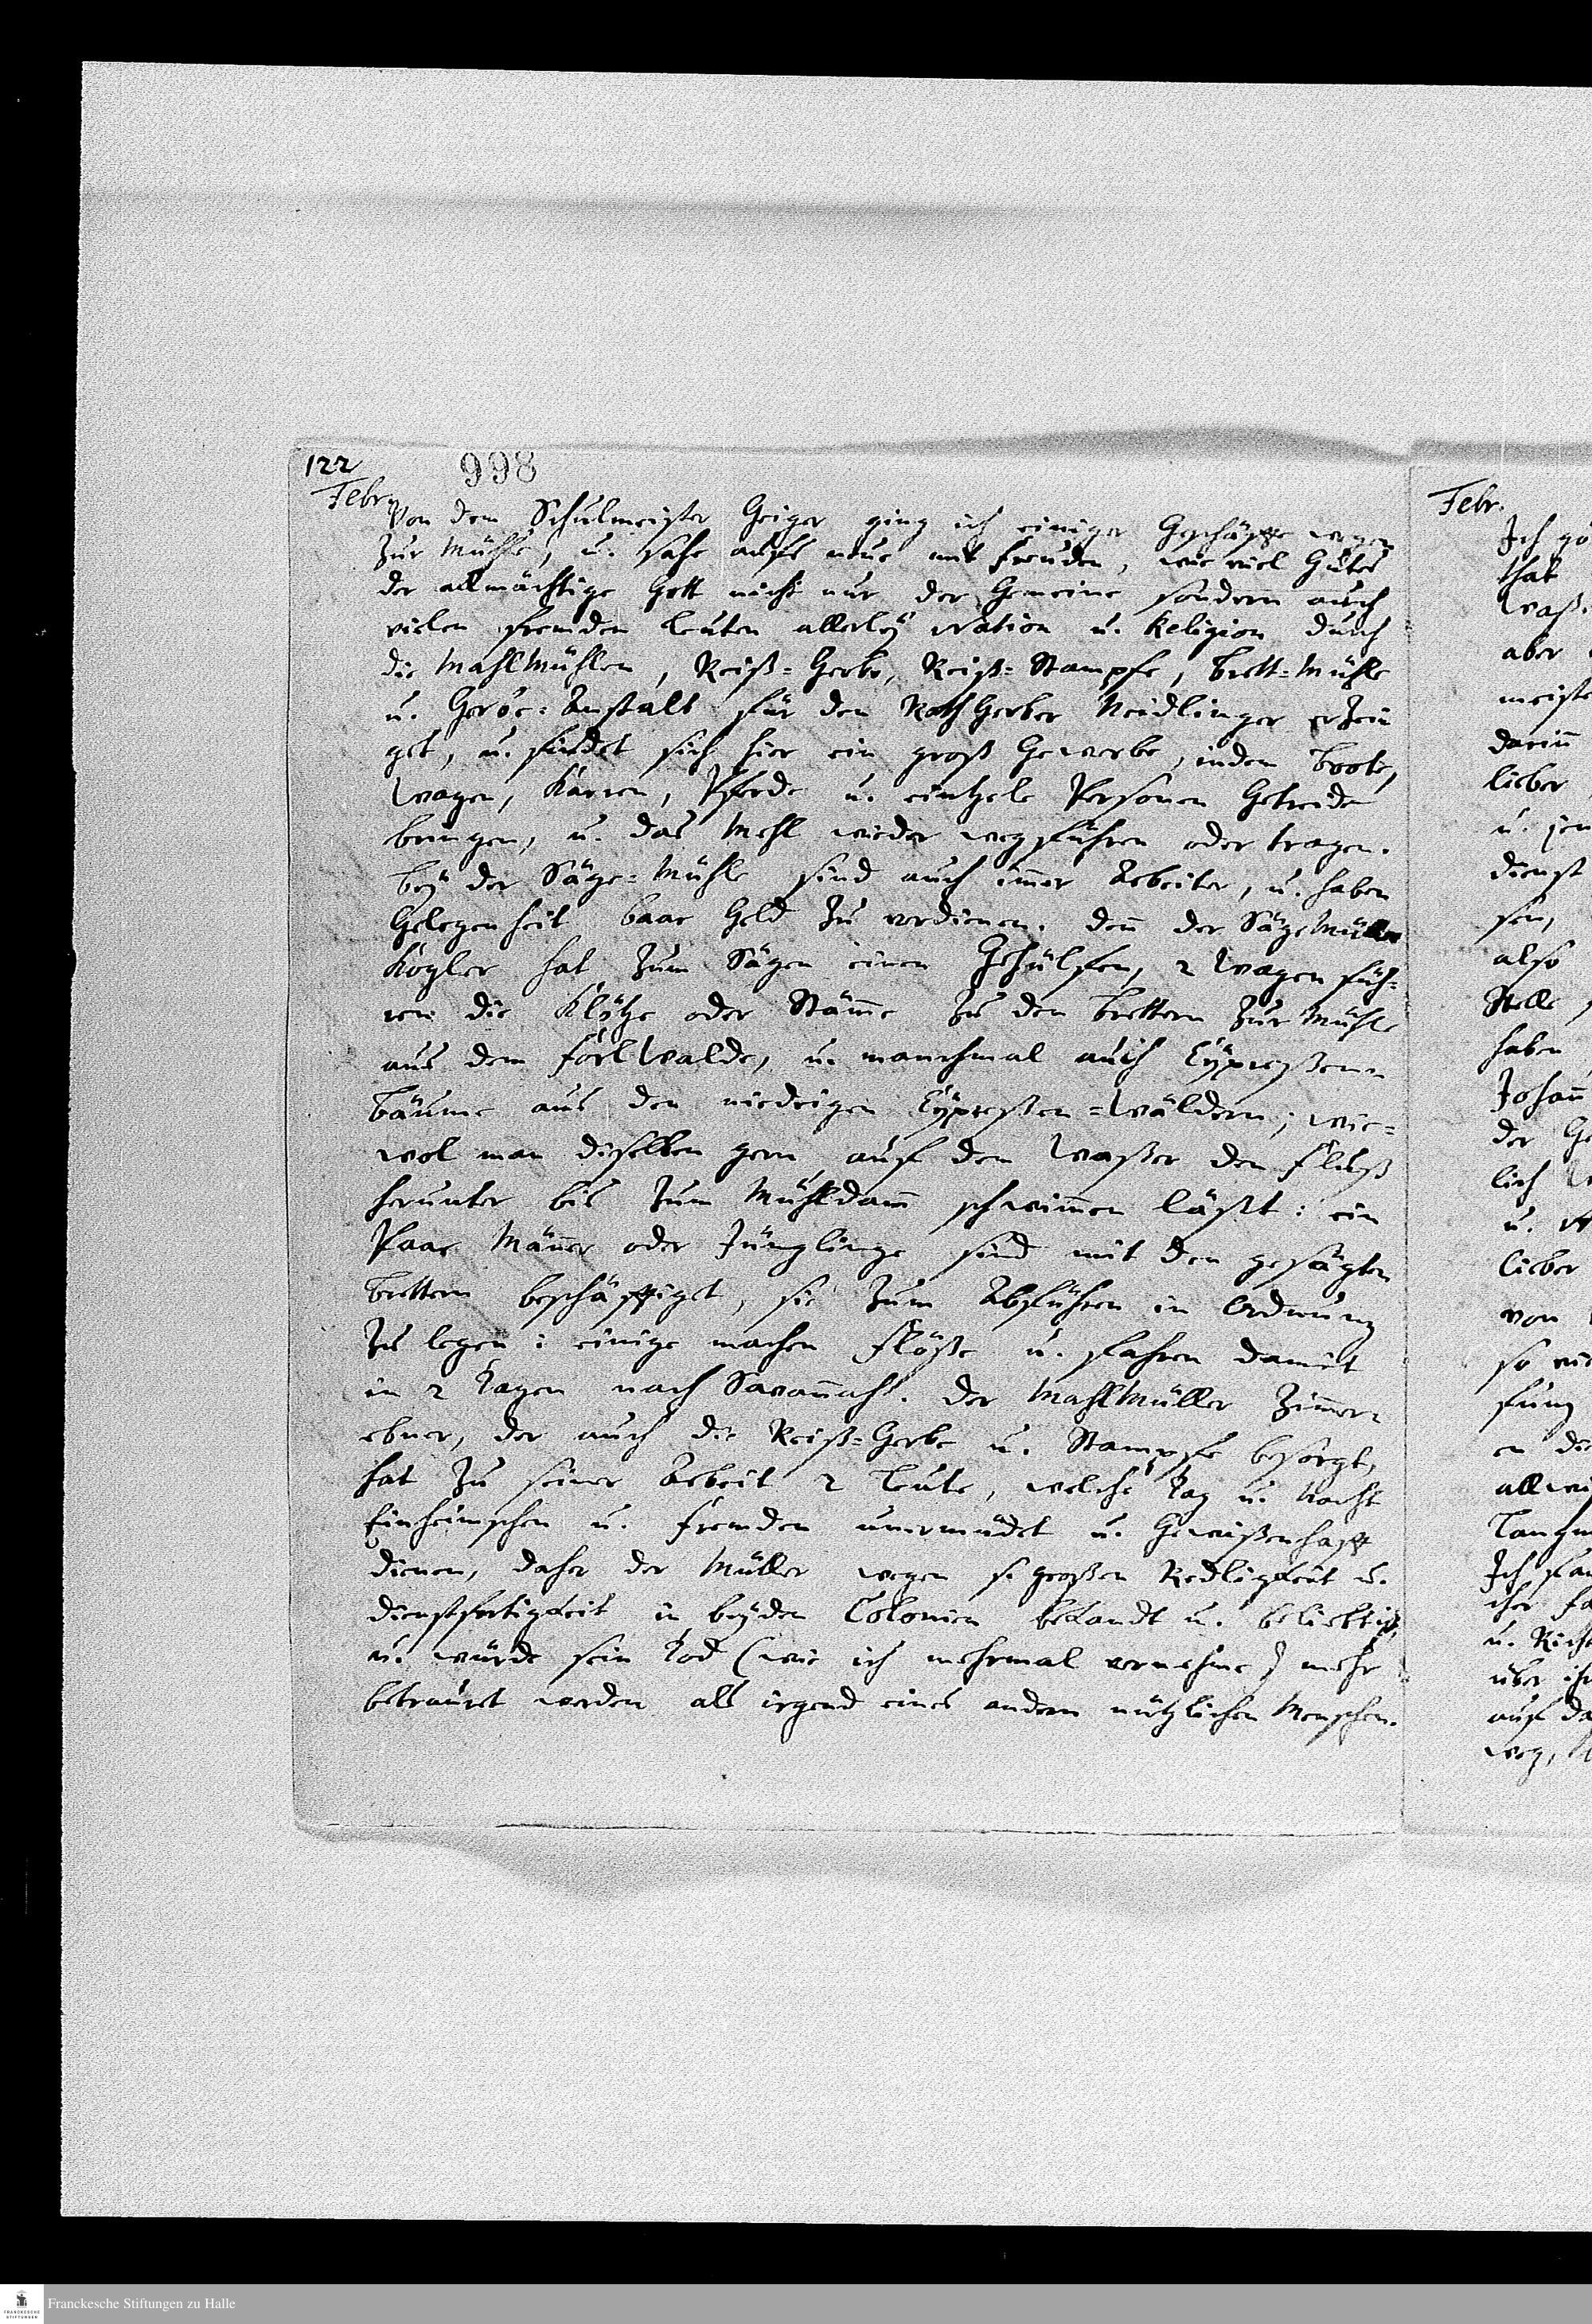 122
998
Febr.
Von dem Schulmeister Geiger ging ich einiger Geschäffte wegen
zur Mühle, u. sahe aufs neue mit Freuden, wie viel Gutes
der allmächtige Gott nicht nur der Gemeine sondern auch
vielen fremden Leuten allerley Nation u. Religion durch
die MahlMühlen, Reiß-Gerbe, Reiß-Stampfe, Brett-Mühle
u. Gerbe-Anstalt für den RothGerber Neidlinger erzei
get, u. findet sich hier ein groß Gewerbe, indem Boote,
Wagen, Karren, Pferde u. eintzele Personen Getreide
bringen, u. das Mehl wieder wegführen oder tragen.
Bey der Säge-Mühle sind auch im̄er Arbeiter, u. haben
Gelegenheit baar Geld zu verdienen. den̄ der SägeMüller
Kogler hat zum Sägen einen Gehülfen, 2 Wagen füh-
ren die Klötze oder Stäm̄e zu den Brettern zur Mühle
aus dem FörlWalde, u. manchmal auch Cypreßen-
Bäume aus den niedrigen Cypreßen-Wäldern; wie-
wol man dieselben gern auf dem Waßer den Fluß
herunter bis zum Mühldam̄ schwim̄en läßt: ein
Paar Män̄er oder Jünglinge sind mit den gesägten
Brettern beschäfftiget, sie zum Abführen in Ordnung
zu legen: einige machen Flöße u. fahren damit
in 2 Tagen nach Savan̄ah. Der MahlMüller Zim̄er-
ebner, der auch die Reiß-Gerbe u. Stampfe besorgt,
hat zu seiner Arbeit 2 Leute, welche Tag u. Nacht
Einheimschen u. Fremden unermüdet u. Gewißenhafft
dienen, daher der Müller wegen s. großen Redligkeit u.
Dienstfertigkeit in beyden Colonien bekandt u. beliebt ist,
u. würde sein Tod (wie ich mehrmal vernehme) mehr
betrauret werden als irgend eines andern nützlichen Menschen.
Febr.
that
aber
meiste
darin̄
lieber
dienst
also
Stelle
haben
Johan̄
der
lich
lieber
von
auf
Franckesche Stiftungen zu Halle